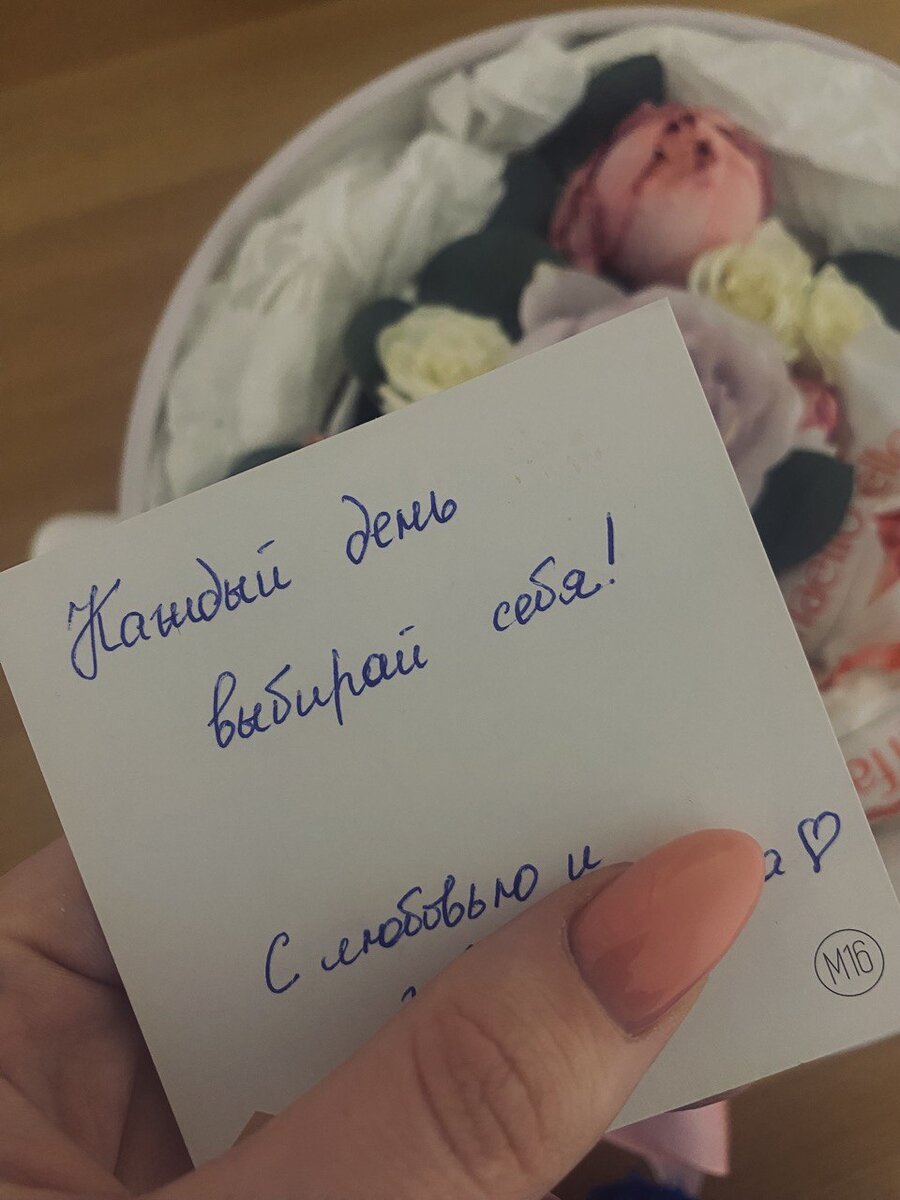 Каждый день
выбирай себя!
С любовью и
М16